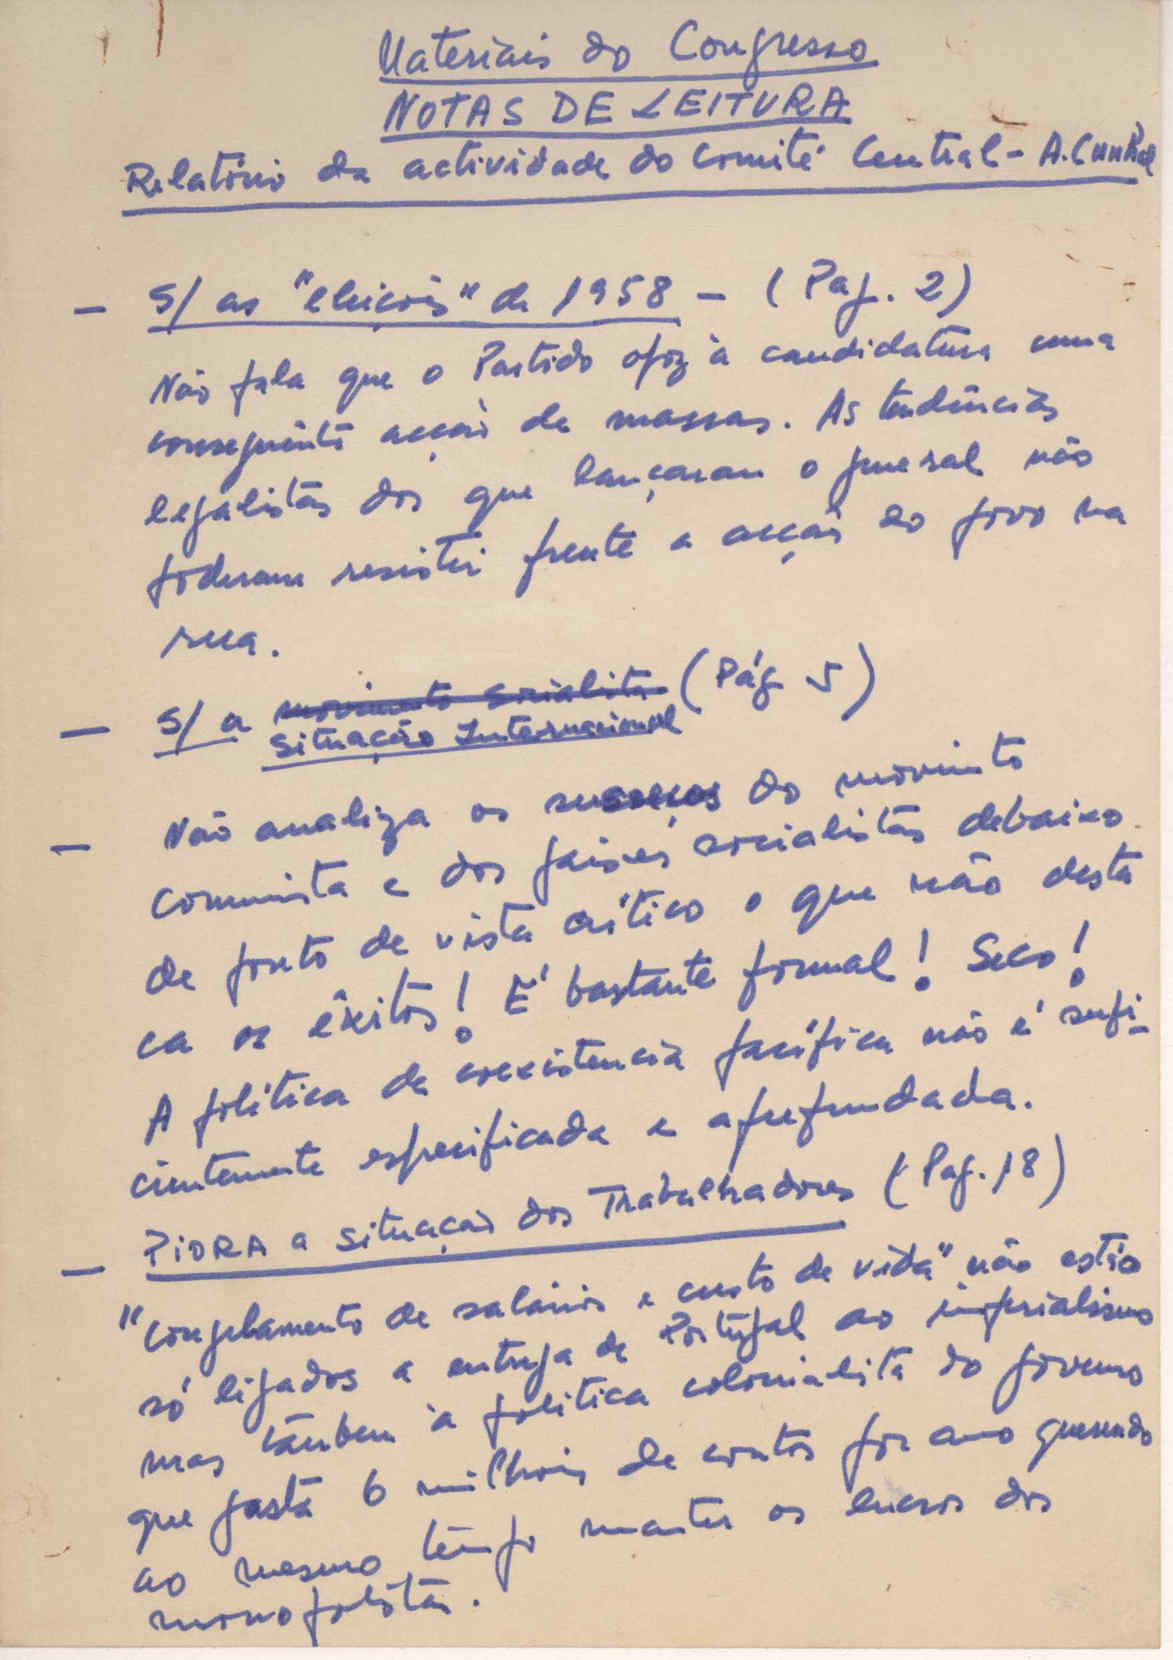 Materiais do Congresso
NOTAS DE LEITURA
Relatório da actividade do Comité Central - A. Cunhal
- S/ as "eleições" de 1958 - (Pag. 2)
Não fala que o Partido opoz à candidatura uma
consequente acção de massas. As tendências
legalistas dos que lançaram o general não
poderam resistir frente a acção do povo na
rua.
- S/ a movimento socialista (Pág 5)
Situação Internacional
- Não analiza os sucessos do movimento
comunista e dos paises socialistas debaixo
de ponto de vista crítico o que não desta
ca os êxitos! É bastante formal! Seco!
A politica de coexistencia pacífica não é sufi-
cientemente especificada e aprofundada.
- PIORA a situação dos Trabalhadores (Pag. 18)
"Congelamento de salários e custo de vida" não estão
só ligados a entrega de Portugal ao imperialismo
mas tambem à politica colonialista do governo
que gasta 6 milhões de contos por ano querendo
ao mesmo tempo manter os lucros dos
monopolistas.